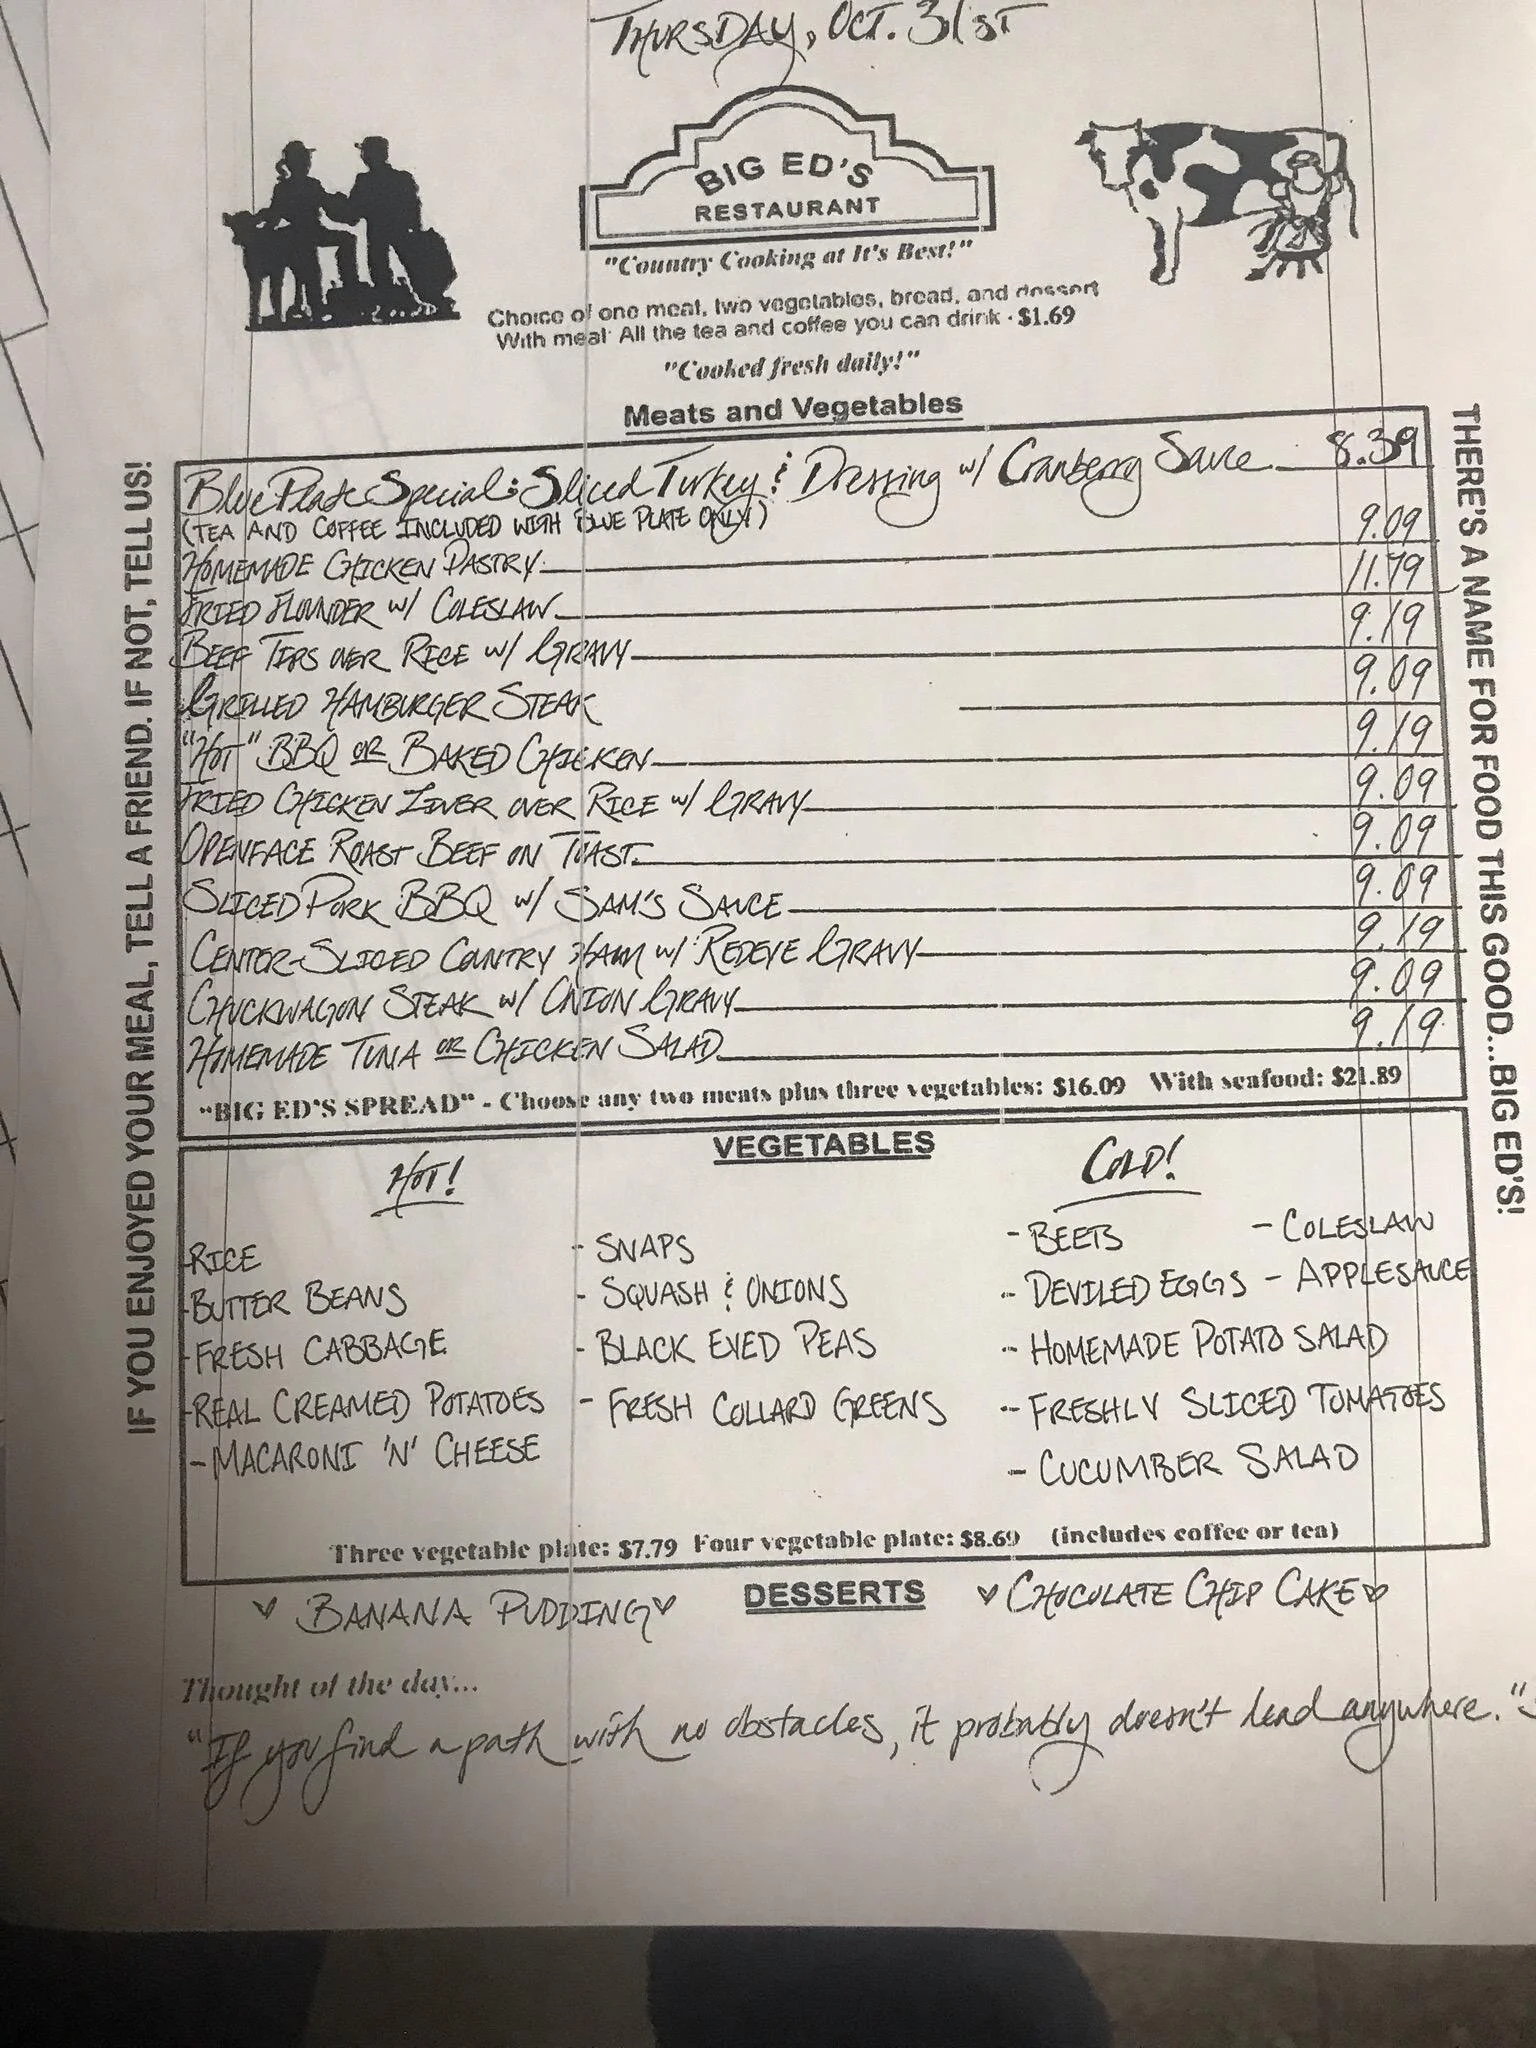 THURSDAY, OCT. 31ST
BIG ED'S
RESTAURANT
"Country Cooking at It's Best!"
Choice of one meat, two vegetables, bread, and dessert
With meal: All the tea and coffee you can drink · $1.69
"Cooked fresh daily!"
Meats and Vegetables
Blue Plate Special: Sliced Turkey & Dressing w/ Cranberry Sauce 8.39
(TEA AND COFFEE INCLUDED WITH BLUE PLATE ONLY)
HOMEMADE CHICKEN PASTRY 9.09
FRIED FLOUNDER W/ COLESLAW 11.79
BEEF TIPS OVER RICE W/ GRAVY 9.19
GRILLED HAMBURGER STEAK 9.09
"HOT" BBQ OR BAKED CHICKEN 9.19
FRIED CHICKEN LIVER OVER RICE W/ GRAVY 9.09
OPENFACE ROAST BEEF ON TOAST 9.09
SLICED PORK BBQ W/ SAM'S SAUCE 9.09
CENTER-SLICED COUNTRY HAM W/ REDEYE GRAVY 9.19
CHUCKWAGON STEAK W/ ONION GRAVY 9.09
HOMEMADE TUNA OR CHICKEN SALAD 9.19
"BIG ED'S SPREAD" - Choose any two meats plus three vegetables: $16.09 With seafood: $21.89
VEGETABLES
HOT!
- RICE
- BUTTER BEANS
- FRESH CABBAGE
- REAL CREAMED POTATOES
- MACARONI 'N' CHEESE
- SNAPS
- SQUASH & ONIONS
- BLACK EYED PEAS
- FRESH COLLARD GREENS
COLD!
- BEETS - COLESLAW
- DEVILED EGGS - APPLESAUCE
- HOMEMADE POTATO SALAD
- FRESHLY SLICED TOMATOES
- CUCUMBER SALAD
Three vegetable plate: $7.79 Four vegetable plate: $8.69 (includes coffee or tea)
DESSERTS
♥ BANANA PUDDING ♥
♥ CHOCOLATE CHIP CAKE ♥
Thought of the day...
"If you find a path with no obstacles, it probably doesn't lead anywhere."
IF YOU ENJOYED YOUR MEAL, TELL A FRIEND. IF NOT, TELL US!
THERE'S A NAME FOR FOOD THIS GOOD...BIG ED'S!